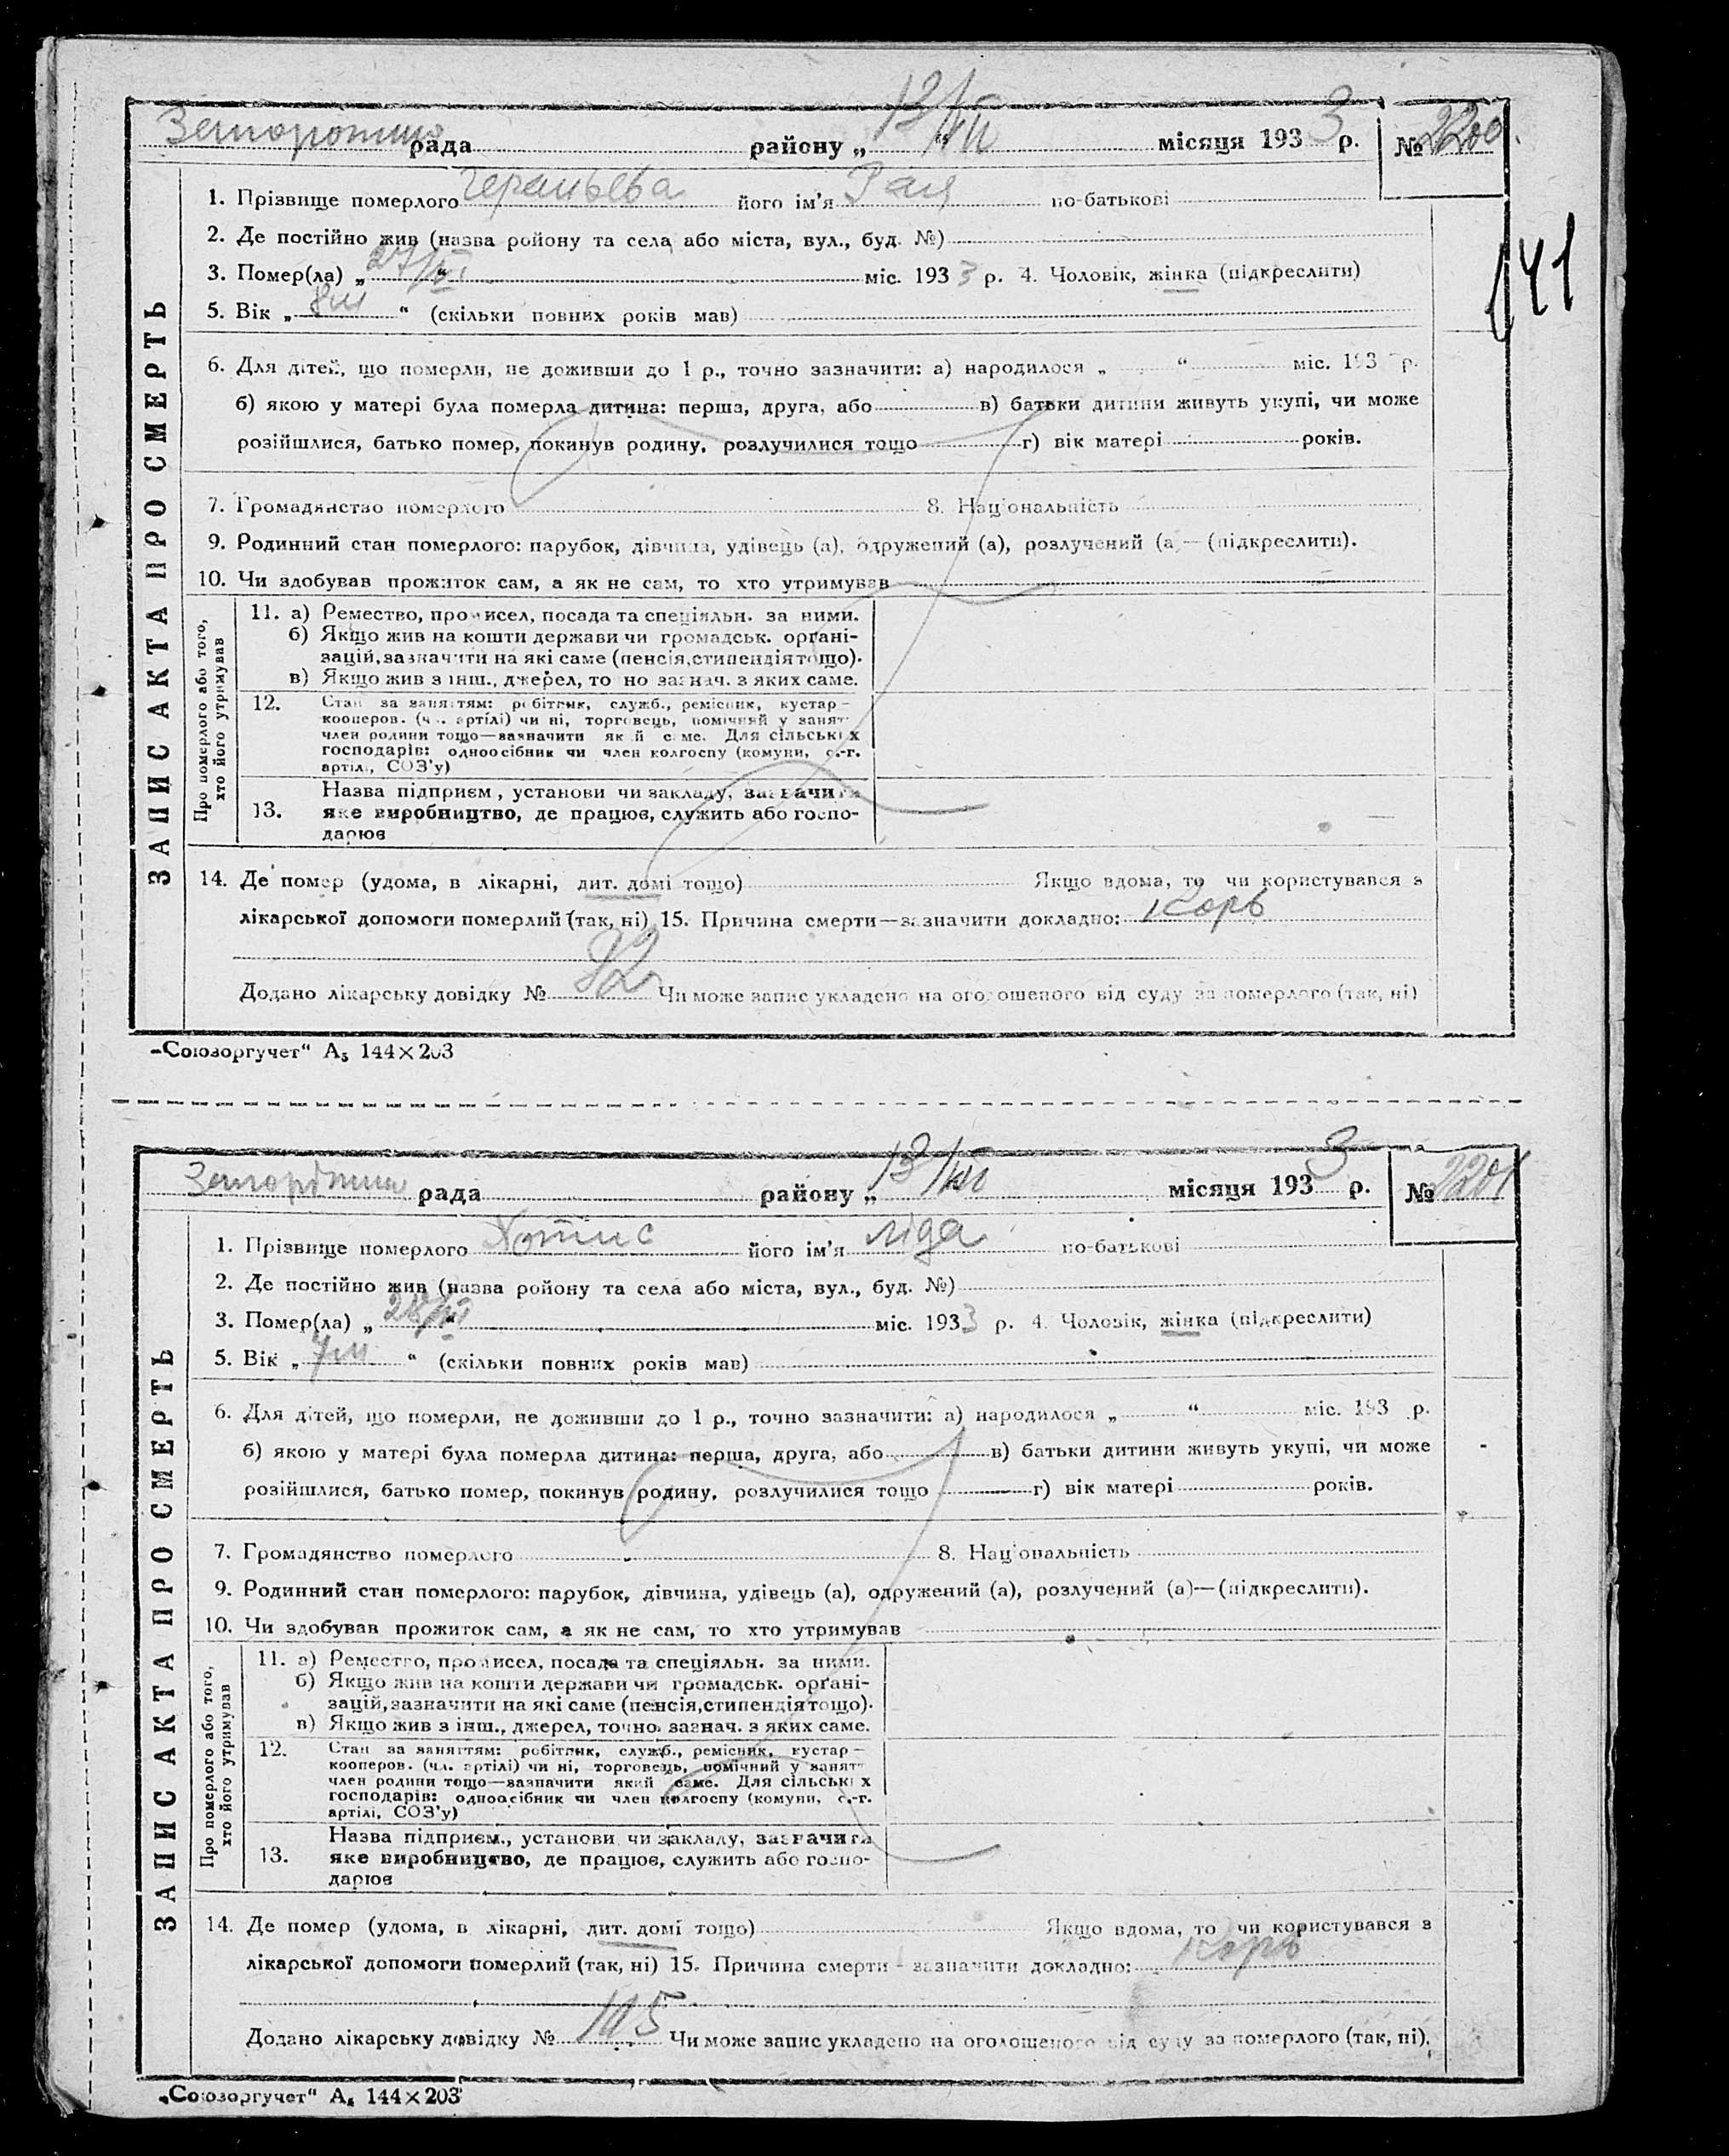 Запоріжжя рада району „13/VII“ місяця 1933 р. № 2200
141
ЗАПИС АКТА ПРО СМЕРТЬ
1. Прізвище померлого його ім'я Рая по-батькові
2. Де постійно жив (назва ройону та села або міста, вул., буд. №)
3. Помер(ла) „27/VI“ міс. 1933 р. 4. Чоловік, жінка (підкреслити)
5. Вік „8 м“ (скільки повних років мав)
6. Для дітей, що померли, не доживши до 1 р., точно зазначити: а) народилося „ “ міс. 193 р.
б) якою у матері була померла дитина: перша, друга, або в) батьки дитини живуть укупі, чи може
розійшлися, батько помер, покинув родину, розлучилися тощо г) вік матері років.
7. Громадянство померлого 8. Національність
9. Родинний стан померлого: парубок, дівчина, удівець (а), одружений (а), розлучений (а)— (підкреслити).
10. Чи здобував прожиток сам, а як не сам, то хто утримував
Про померлого або того,
хто його утримував
11. а) Ремество, промисел, посада та спеціяльн. за ними.
б) Якщо жив на кошти держави чи громадськ. орґані-
зацій, зазначити на які саме (пенсія, стипендія тощо).
в) Якщо жив з інш., джерел, точно зазнач. з яких саме.
12. Стан за заняттям: робітник, служб., ремісник, кустар—
кооперов. (чл. артілі) чи ні, торговець, помічний у занят
член родини тощо—зазначити який саме. Для сільських
господарів: одноосібник чи член колгоспу (комуни, с.-г.
артілі, СОЗ'у)
13. Назва підприєм., установи чи закладу, зазначити
яке виробництво, де працює, служить або госпо-
дарює
14. Де помер (удома, в лікарні, дит. домі тощо) Якщо вдома, то чи користувався з
лікарської допомоги померлий (так, ні) 15. Причина смерти—зазначити докладно: Корь
Додано лікарську довідку № 92 Чи може запис укладено на оголошеного від суду за померлого (так, ні)
„Союзоргучет“ А₅ 144×203
Запоріжжя рада району „13/VII“ місяця 1933 р. № 2201
ЗАПИС АКТА ПРО СМЕРТЬ
1. Прізвище померлого Хотис його ім'я Ліда по-батькові
2. Де постійно жив (назва ройону та села або міста, вул., буд. №)
3. Помер(ла) „28/VI“ міс. 1933 р. 4. Чоловік, жінка (підкреслити)
5. Вік „7 м“ (скільки повних років мав)
6. Для дітей, що померли, не доживши до 1 р., точно зазначити: а) народилося „ “ міс. 193 р.
б) якою у матері була померла дитина: перша, друга, або в) батьки дитини живуть укупі, чи може
розійшлися, батько помер, покинув родину, розлучилися тощо г) вік матері років.
7. Громадянство померлого 8. Національність
9. Родинний стан померлого: парубок, дівчина, удівець (а), одружений (а), розлучений (а)—(підкреслити).
10. Чи здобував прожиток сам, а як не сам, то хто утримував
Про померлого або того,
хто його утримував
11. а) Ремество, промисел, посада та спеціяльн. за ними.
б) Якщо жив на кошти держави чи громадськ. орґані-
зацій, зазначити на які саме (пенсія, стипендія тощо).
в) Якщо жив з інш., джерел, точно зазнач. з яких саме.
12. Стан за заняттям: робітник, служб., ремісник, кустар—
кооперов. (чл. артілі) чи ні, торговець, помічний у занят
член родини тощо—зазначити який саме. Для сільських
господарів: одноосібник чи член колгоспу (комуни, с.-г.
артілі, СОЗ'у)
13. Назва підприєм., установи чи закладу, зазначити
яке виробництво, де працює, служить або госпо-
дарює
14. Де помер (удома, в лікарні, дит. домі тощо) Якщо вдома, то чи користувався з
лікарської допомоги померлий (так, ні) 15. Причина смерти—зазначити докладно: Корь
Додано лікарську довідку № 105 Чи може запис укладено на оголошеного від суду за померлого (так, ні).
„Союзоргучет“ А₅ 144×203